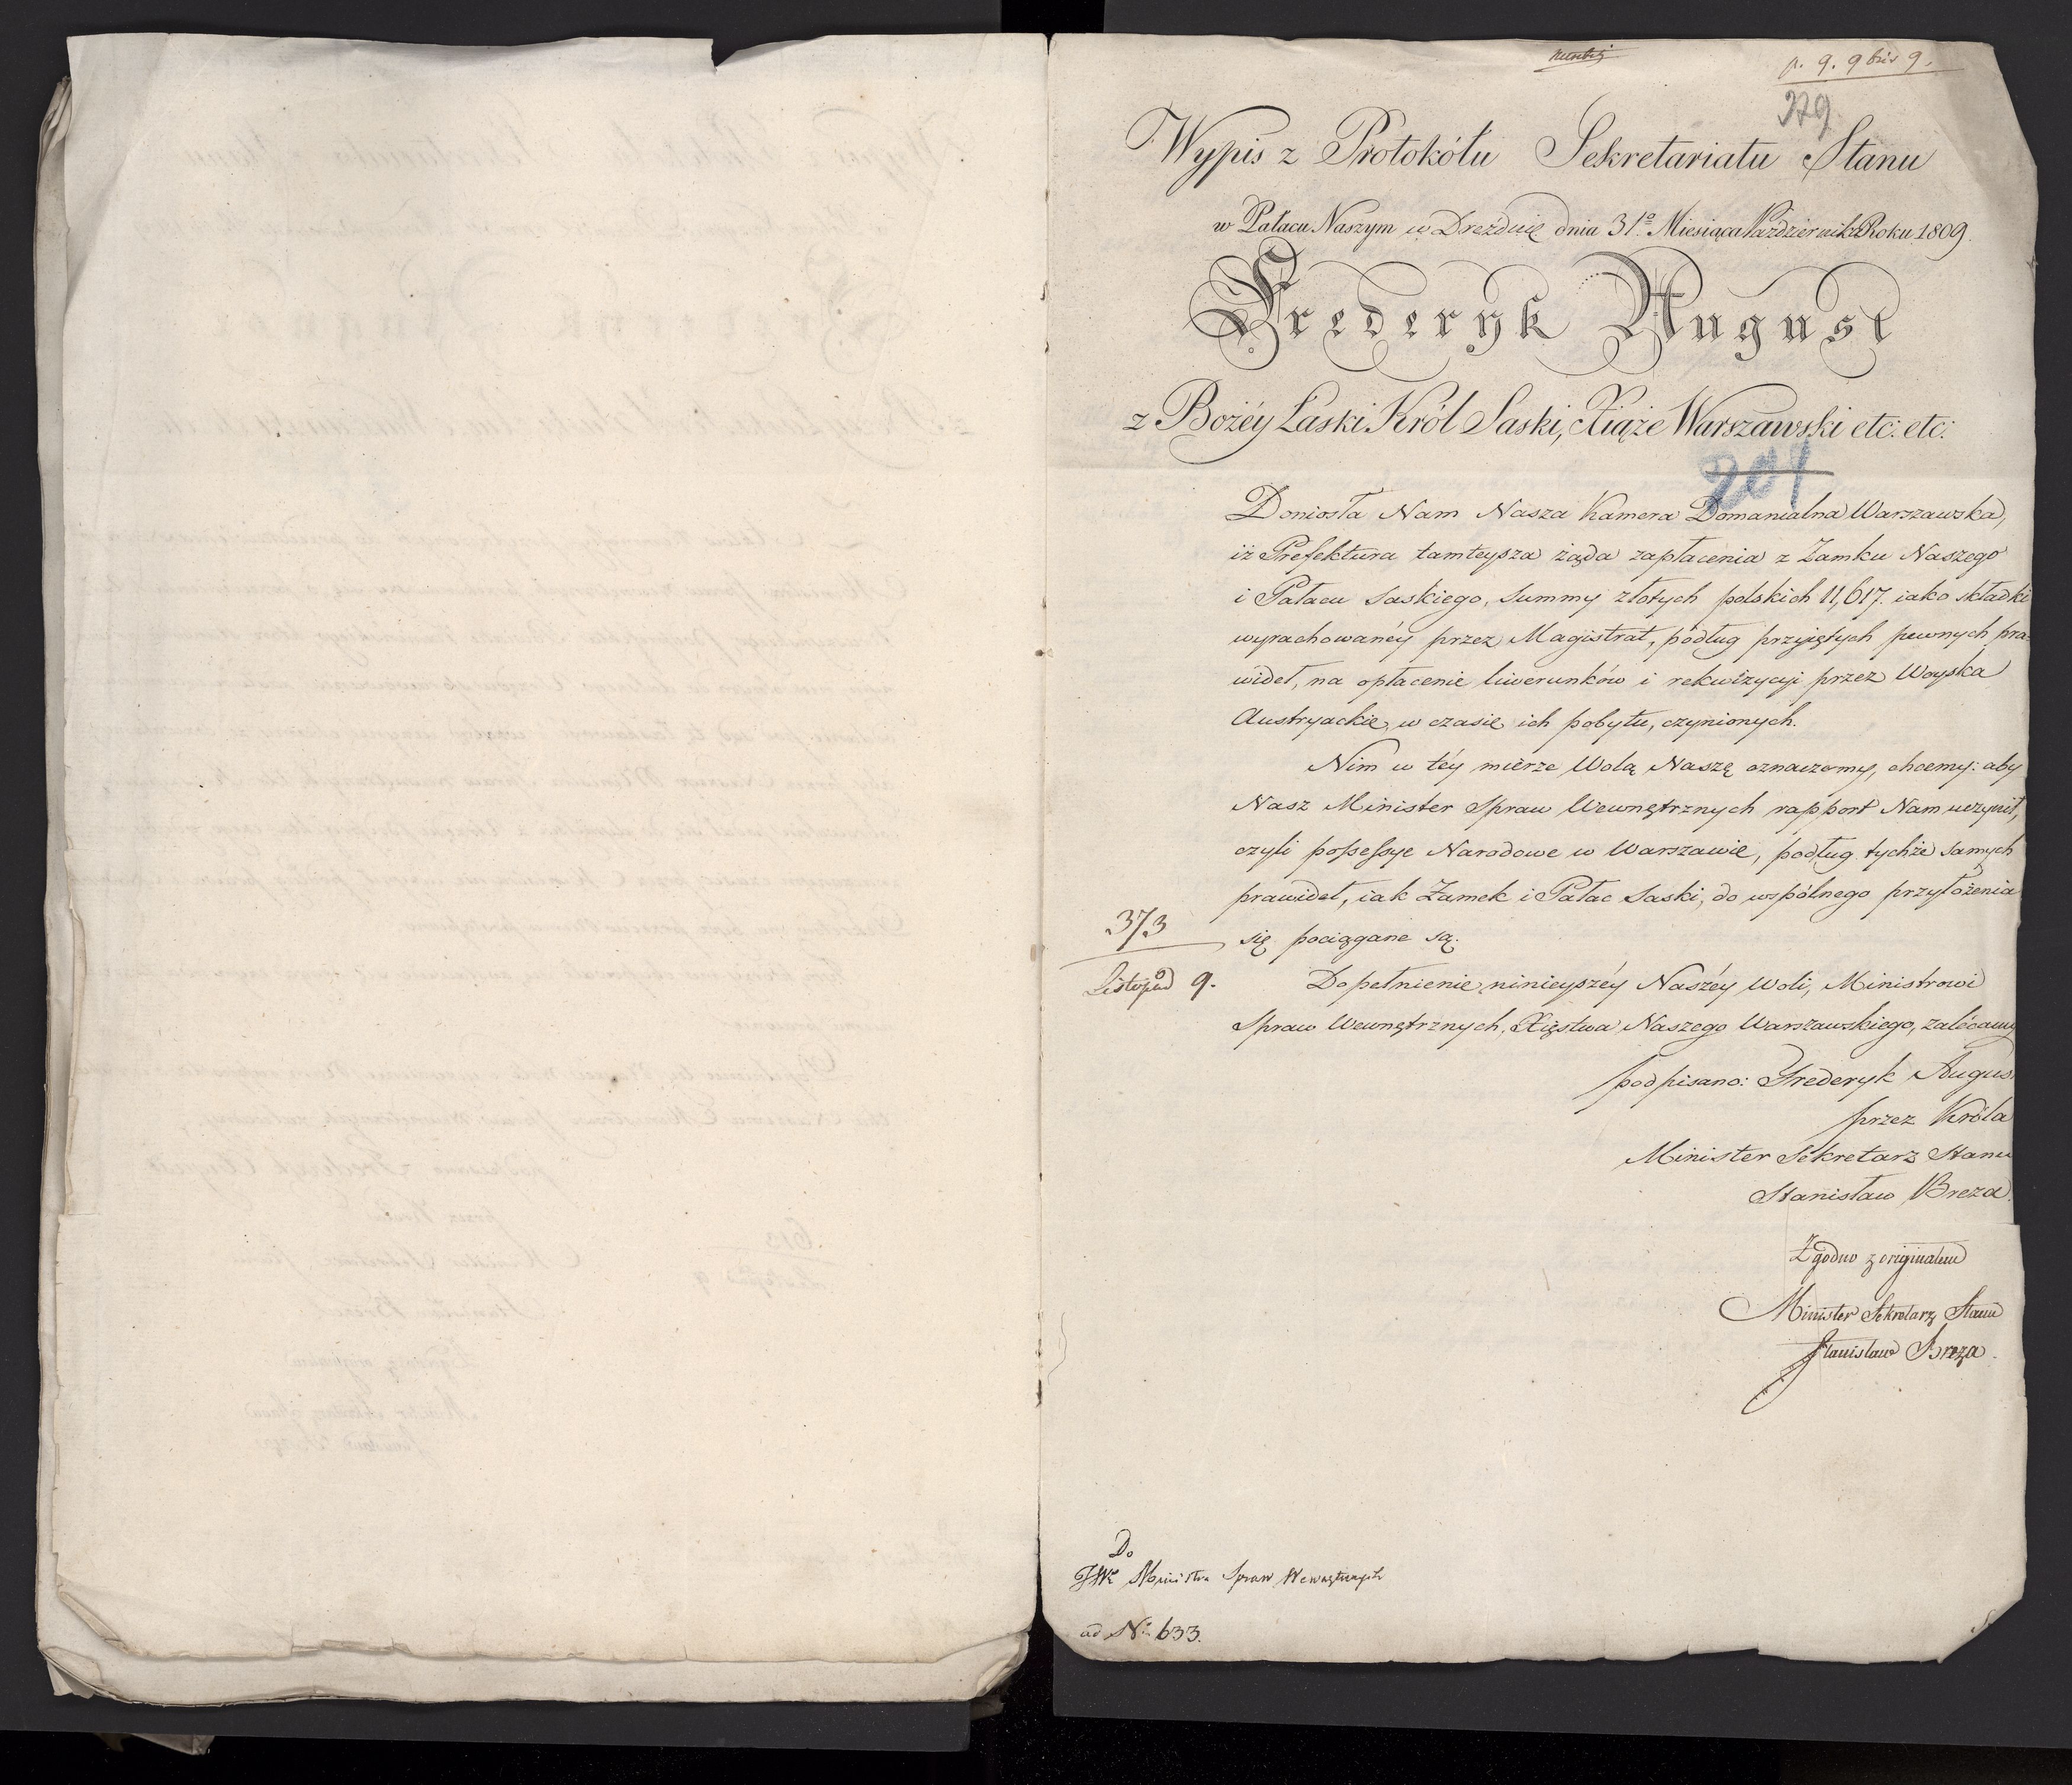 p. 9. 9bris 9.
379
Wypis z Protokółu Sekretariatu Stanu
w Pałacu Naszym w Dreźdnie dnia 31o Miesiąca Października Roku 1809.
Frederyk August
z Bożéy Łaski Król Saski, Xiąże Warszawski etc: etc:
201
Doniosła Nam Nasza Kamera Domanialna Warszawska,
iż Prefektura tamteysza żąda zapłacenia z Zamku Naszego
i Pałacu Saskiego, Summy złotych polskich 11,617. iako składki
wyrachowanéy przez Magistrat, podług przyiętych pewnych pra=
wideł, na opłacenie liwerunków i rekwizycyi przez Woyska
Austryackie, w czasie ich pobytu, czynionych.
Nim w téy mierze Wolą Naszę oznaczemy, chcemy: aby
Nasz Minister Spraw Wewnętrznych rapport Nam uczynił,
czyli possessye Narodowe w Warszawie, podług tychże samych
prawideł, iak Zamek i Pałac Saski, do wspólnego przyłożenia
się pociągane są.
373
Listopad 9.
Dopełnienie ninieyszéy Naszéy Woli, Ministrowi
Spraw Wewnętrznych, Xięstwa Naszego Warszawskiego, zalécamy
podpisano: Frederyk August
przez Króla
Minister Sekretarz Stanu
Stanisław Breza.
Zgodno z originałem
Minister Sekretarz Stanu
Stanisław Breza.
Do
JWo Ministra Spraw Wewnętrznych
ad No 633.